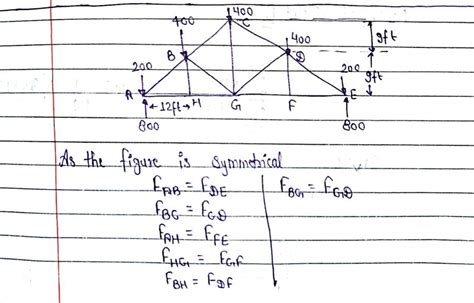 400
400 C
9ft
400
B D
200 200 9ft
A 12ft H G F E
800 800
As the figure is symmetrical
F_AB = F_DE F_BG = F_GD
F_BG = F_CD
F_AH = F_FE
F_HG = F_GF
F_BH = F_DF